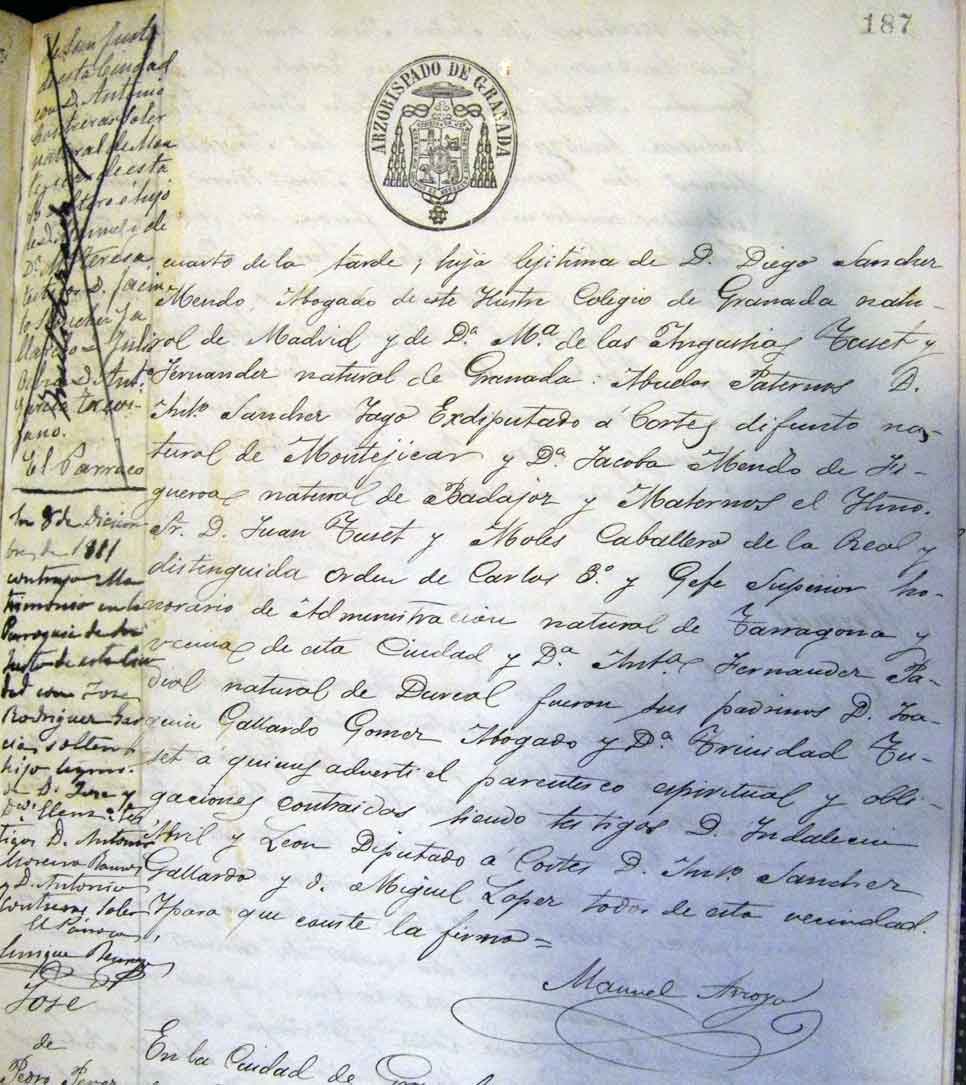 187
ARZOBISPADO DE GRANADA
de San Justo
de esta Ciudad
con D. Antonio
Contreras Soler
natural de Mon
de esta
soltero é hijo
de
Dª. Mª Teresa
testigos D.
D. Antº
Garcia
El Parroco
En 8 de Diciem
bre de 1911
contrajo Ma
trimonio en la
Parroquia de Sn
Justo de esta Ciu
dad con Jose
Rodriguez Gar
cia, soltero
hijo legmo.
de D. Jose y
Dª. Elena. Tes
tigos D. Antonio
Moreno
y D. Antonio
Contreras Soler
El Parroco,
Enrique
Jose
de
Pedro Perez
cuarto de la tarde; hija legitima de D. Diego Sanchez
Mendo, Abogado de este Ilustre Colegio de Granada natu-
ral de Madrid y de Dª. Mª. de las Angustias Tuset y
Fernandez natural de Granada: Abuelos Paternos D.
Antº. Sanchez Yago Exdiputado á Cortes difunto na-
tural de Montejicar y Dª. Jacoba Mendo de Fi-
gueroa, natural de Badajoz y Maternos el Yltmo.
Sr. D. Juan Tuset y Moles Caballero de la Real y
distinguida orden de Carlos 3º. y Gefe Superior ho-
norario de Administracion natural de Tarragona y
vecino de esta Ciudad y Dª. Antª. Fernandez Pa-
dial natural de Durcal fueron sus padrinos D. Joa-
quin Gallardo Gomez Abogado y Dª. Trinidad Tu-
set á quienes adverti el parentesco espiritual y obli-
gaciones contraidas siendo testigos D. Indalecio
Abril y Leon Diputado á Cortes D. Antº. Sanchez
Gallardo y D. Miguel Lopez todos de esta vecindad.
Y para que conste la firmo =
Manuel Arroyo
En la Ciudad de